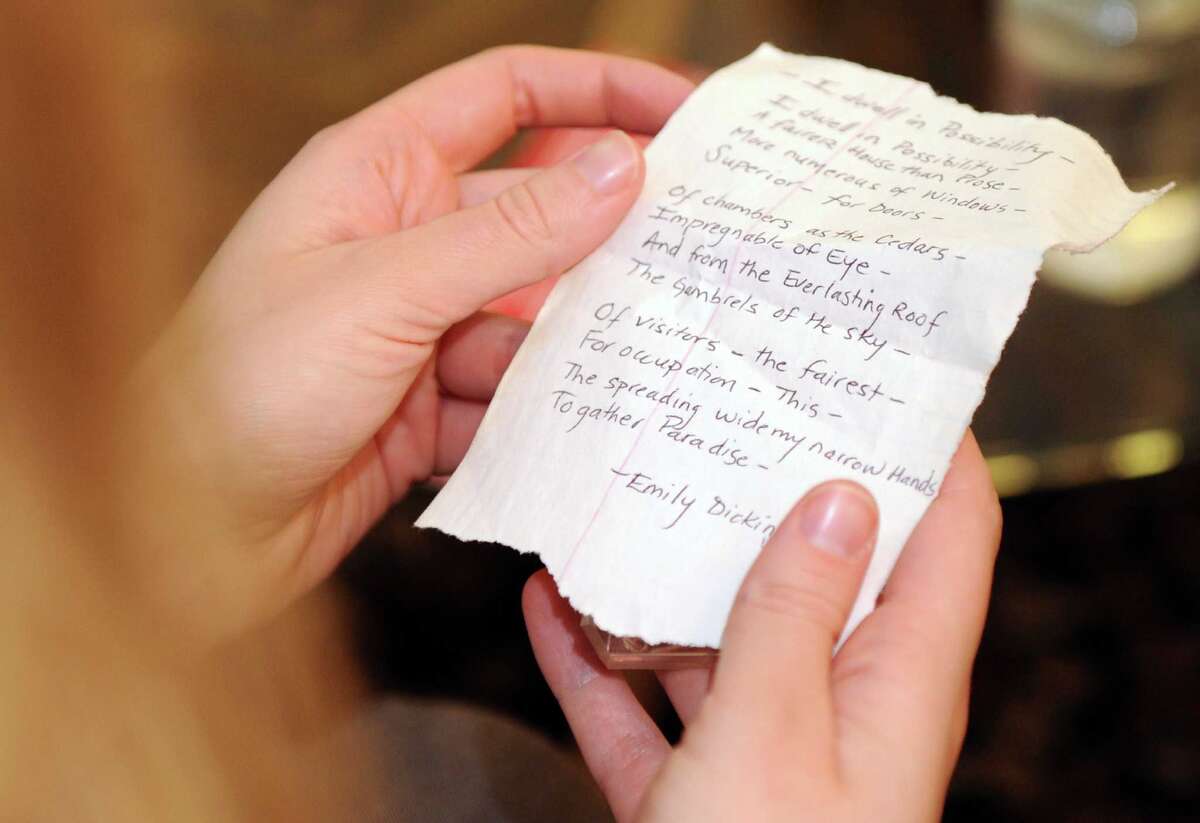 - I dwell in Possibility -
I dwell in Possibility -
A fairer House than Prose -
More numerous of Windows -
Superior - for Doors -
Of chambers as the Cedars -
Impregnable of Eye -
And from the Everlasting Roof
The Gambrels of the sky -
Of visitors - the fairest -
For occupation - This -
The spreading wide my narrow Hands
To gather Paradise -
-Emily Dickin